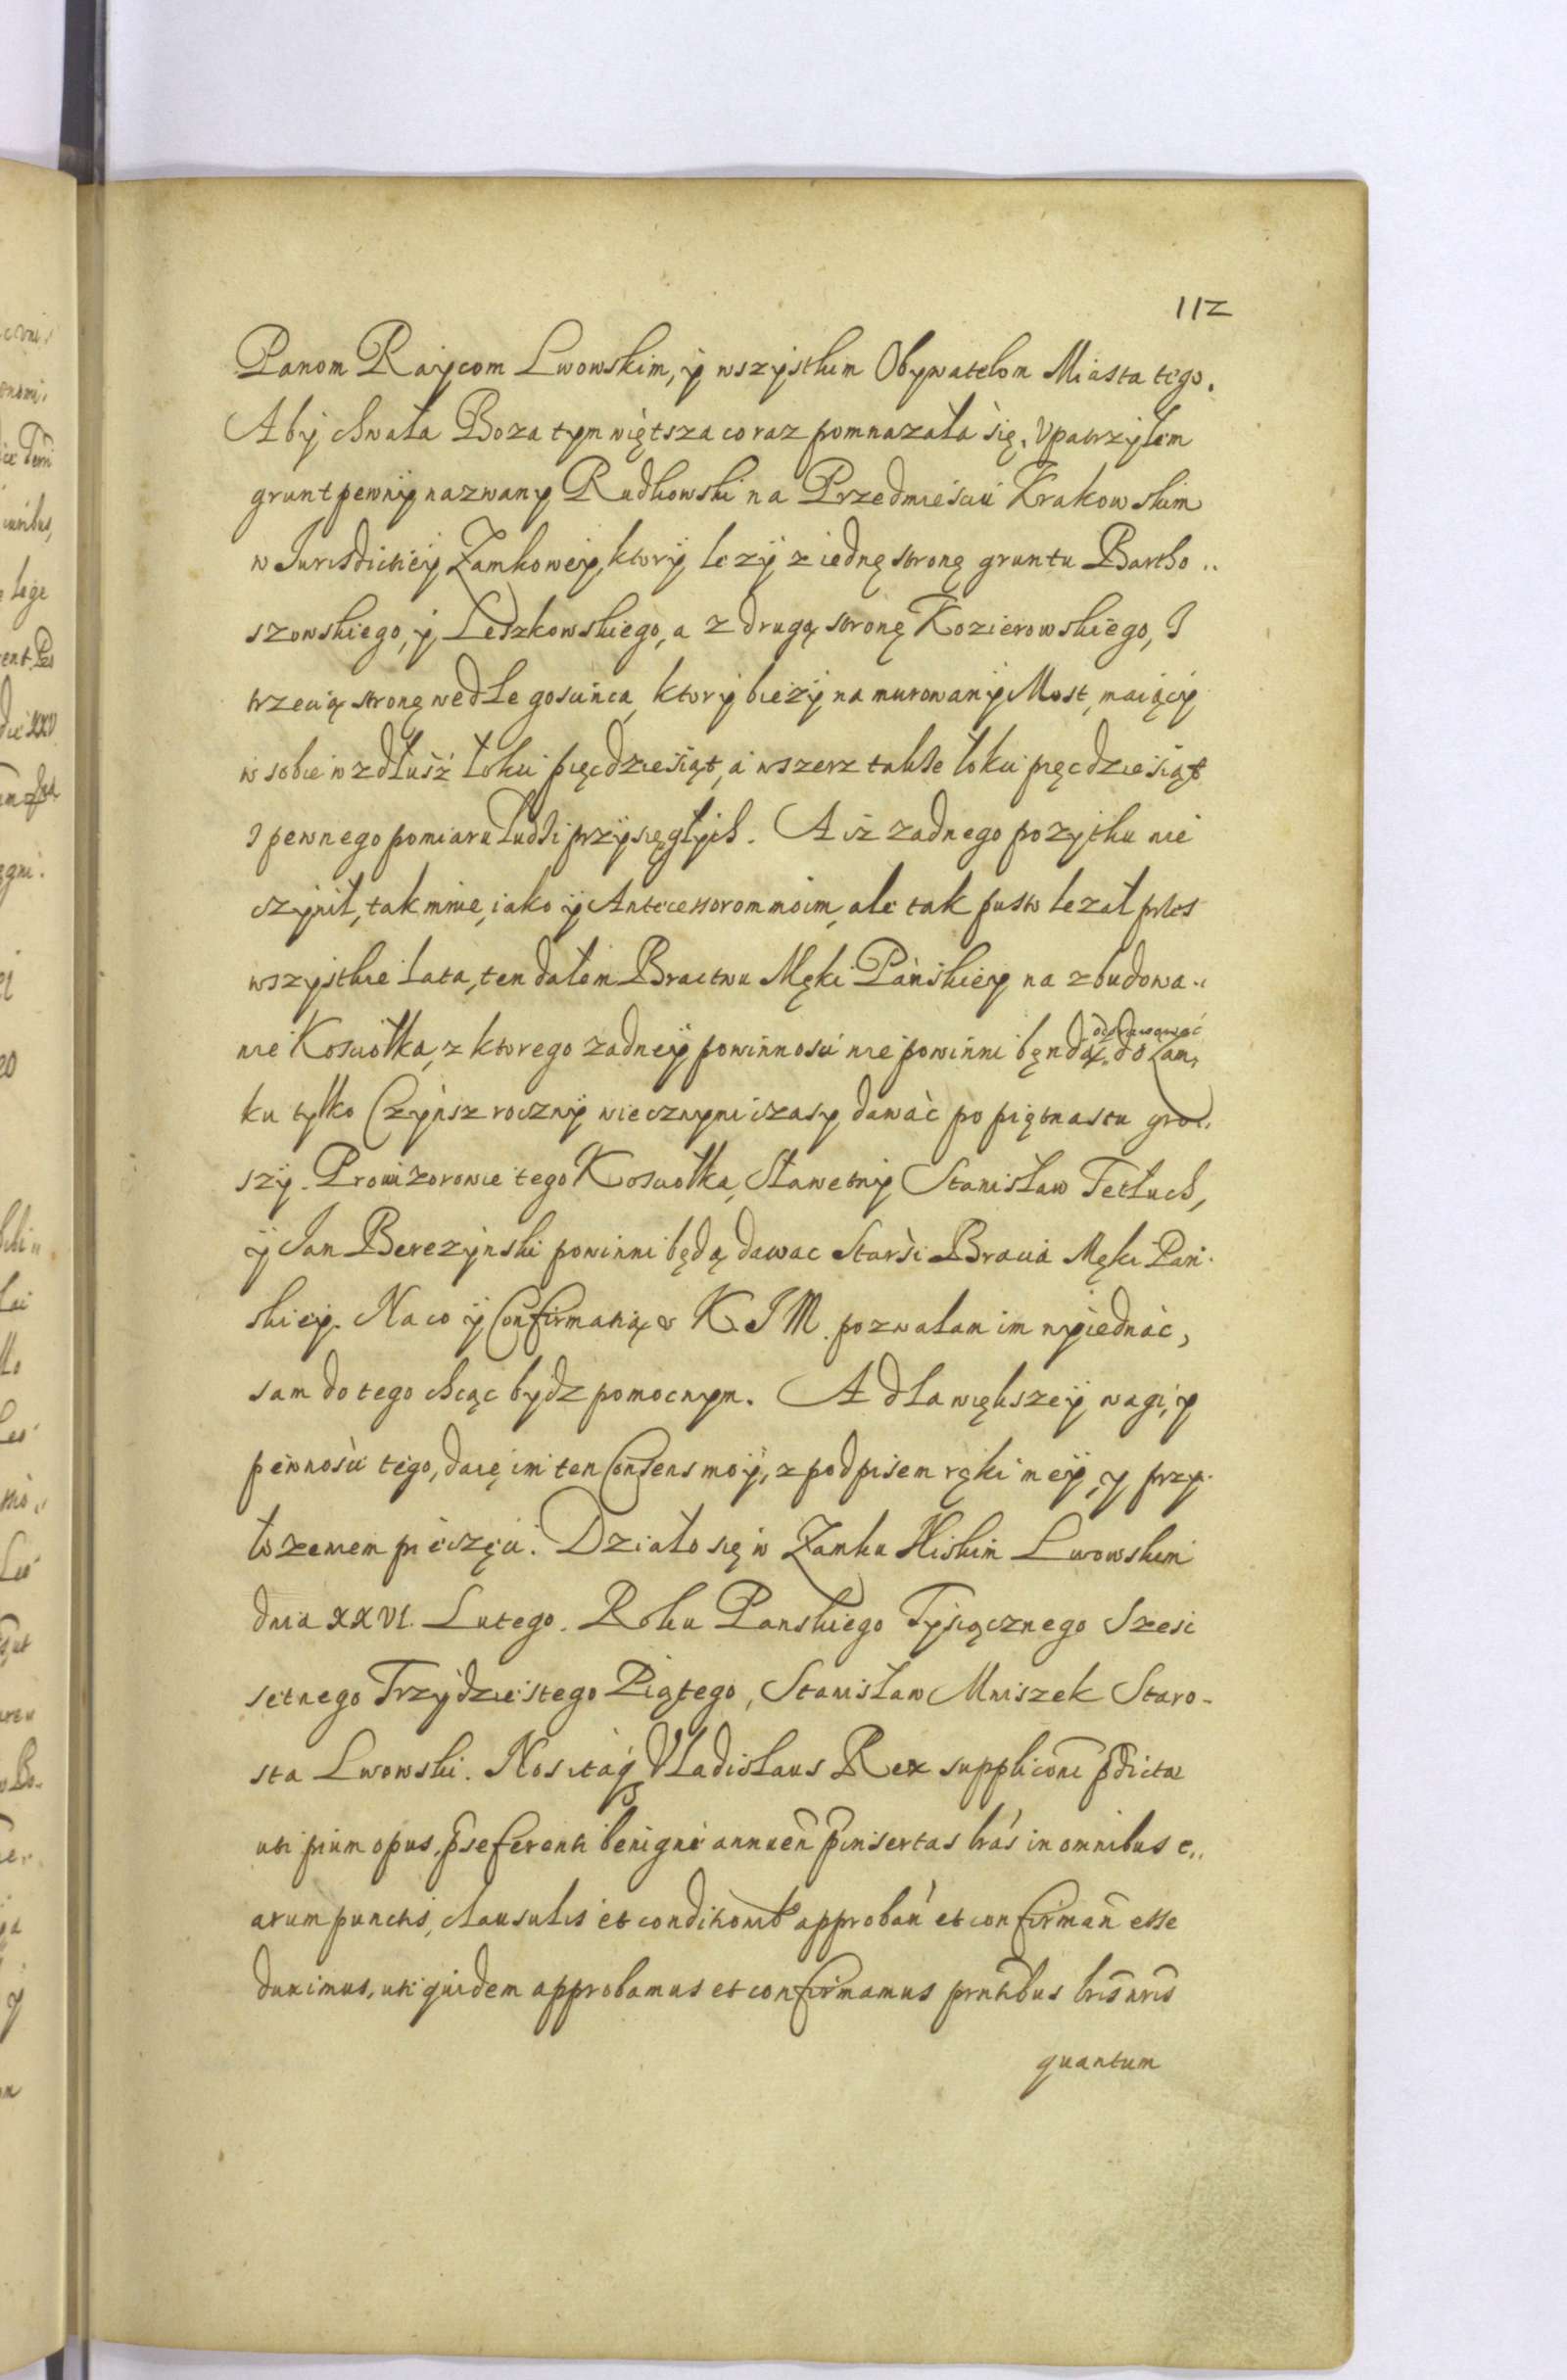 112
Panom Rajcom Lwowskim, ÿ wszÿstkim Obÿwatelom Miasta tego.
Abÿ chwała Boza tym więtsza coraz pomnazała się. Vpatrzÿłem
grunt pewnÿ nazwany Rudkowski na Przedmieściu Krakowskim
w Jurisdictieÿ Zamkoweÿ, ktorÿ lezÿ z iednę stronę gruntu Bartho..
szowskiego, ÿ Leszkowskiego, a z drugą stronę Kozierowskiego, J
trzecią stronę wedle gosцińca, ktorÿ biezÿ na murowanÿ Most, maiącÿ
w sobie wzdłusz łokci pięcdziesiąt, a wszerz takze łokci pięcdziesiąt
J pewnego pomiaru ludzi przÿsięgłÿch. A isz zadnego pozÿtku nie
czÿnił, tak mnie, iako ÿ Antecessorom moim, ale tak pusto lezał przes
wszÿstkie lata, ten dałem Bractwu Męki Pańskieÿ na zbudowa..
nie Kosciołka, z ktorego zadneÿ powinnosci nie powinni będą odprawować do Zam,
ku tylko Czÿnsz rocznÿ wiecznymi czasy dawać po piętnastu gro..
szÿ. Prowizorowie tego Kosciołka, Sławetnÿ Stanisław Fetluch,
ÿ Jan Berezÿnski powinni będą dawac Starsi Bracia Męki Pań.
skieÿ. Na co ÿ Confirmatią v K. J M. pozwalam im wÿiednać,
sam do tego chcąc bydz pomocnym. A dla większeÿ wagi, y
pewnosci tego, daię im ten Consens moÿ, z podpisem ręki meÿ, y przy.
łozeniem pieczęci. Działo się w Zamku Niskim Lwowskim
dnia XXVI. Lutego. Roku Panskiego Tÿsiącznego Szesc
setnego Trzÿdziestego Piątego, Stanisław Mniszek Staro-
sta Lwowski. Nos itaq Vladislaus Rex supplicōni pdictæ
uti pium opus, pseferenti benignè annueñ pinsertas lras in omnibus e..
arum punctis, clausulis et conditionib approbañ et confirmañ esse
duximus, uti quidem approbamus et confirmamus prntibus lris nris
quantum